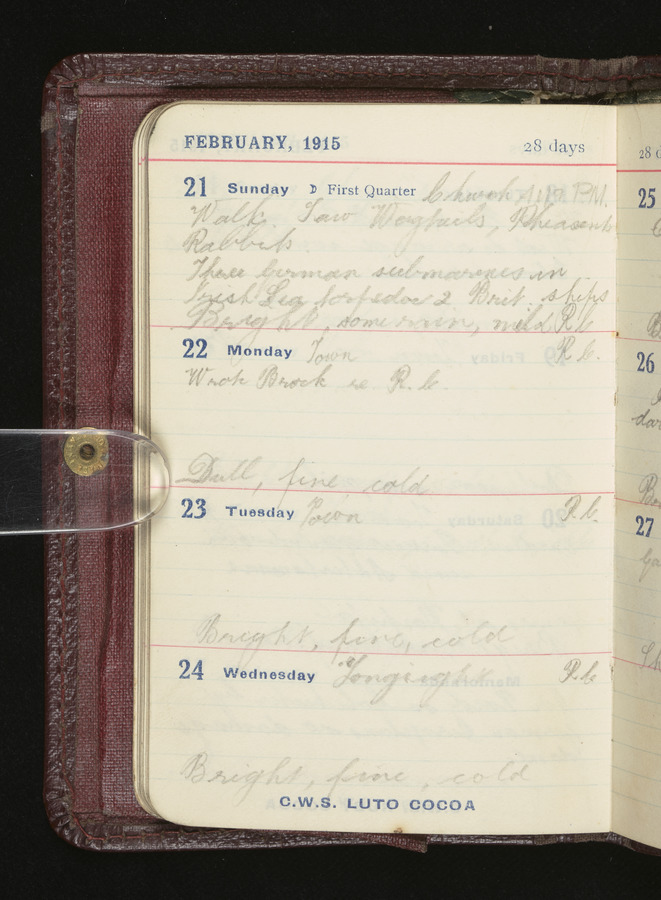 FEBRUARY, 1915 28 days
21 Sunday First Quarter Church P.M.
Walk. Saw Wagtails, Pheasents
Rabbits.
Three German submarines in
Irish Sea torpedoe 2 Brit. ships
Bright, some rain, mild R.C.
22 Monday Town R.C.
Wrote Brock re R.C.
Dull, fine, cold
23 Tuesday Town R.C.
Bright, fine, cold
24 Wednesday R.C.
Bright, fine, cold
C.W.S. LUTO COCOA
28
25
26
27